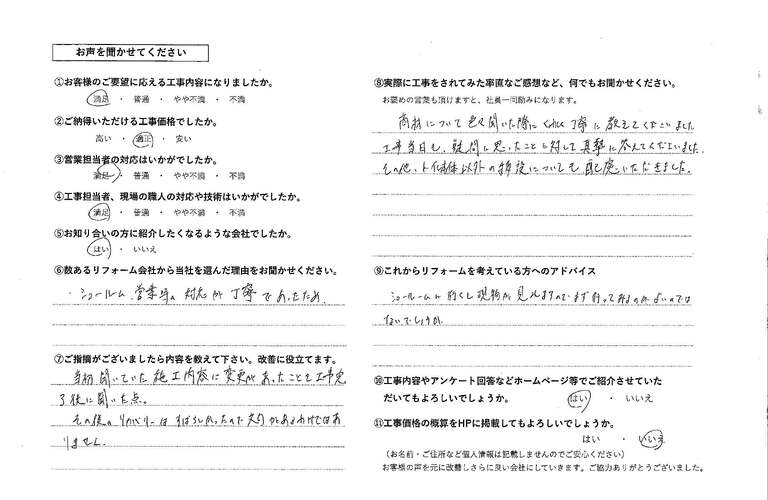 お声を聞かせてください
①お客様のご要望に応える工事内容になりましたか。
満足 ・ 普通 ・ やや不満 ・ 不満
②ご納得いただける工事価格でしたか。
高い ・ 適正 ・ 安い
③営業担当者の対応はいかがでしたか。
満足 ・ 普通 ・ やや不満 ・ 不満
④工事担当者、現場の職人の対応や技術はいかがでしたか。
満足 ・ 普通 ・ やや不満 ・ 不満
⑤お知り合いの方に紹介したくなるような会社でしたか。
はい ・ いいえ
⑥数あるリフォーム会社から当社を選んだ理由をお聞かせください。
・ショールーム、営業等の対応が丁寧であったため。
⑦ご指摘がございましたら内容を教えて下さい。改善に役立てます。
当初聞いていた施工内容に変更があったことを工事完
了後に聞いた点。
その後のリカバリーはすばらしかったので怒りがあるわけではあ
りません。
⑧実際に工事をされてみた率直なご感想など、何でもお聞かせください。
お褒めの言葉も頂けますと、社員一同励みになります。
商材について色々聞いた際にくわしく丁寧に教えてくださいました
工事当日も、疑問に思ったことに対して真摯に答えてくださいました。
その他、トイレ本体以外の 設についても配慮いただきました。
⑨これからリフォームを考えている方へのアドバイス
ショールームに行くと現物が見れますのでまず行ってみるのがよいのでは
ないでしょうか。
⑩工事内容やアンケート回答などホームページ等でご紹介させていた
だいてもよろしいでしょうか。 はい ・ いいえ
⑪工事価格の概算をHPに掲載してもよろしいでしょうか。
はい ・ いいえ
（お名前・ご住所など個人情報は記載しませんのでご安心ください）
お客様の声を元に改善しさらに良い会社にしていきます。ご協力ありがとうございました。